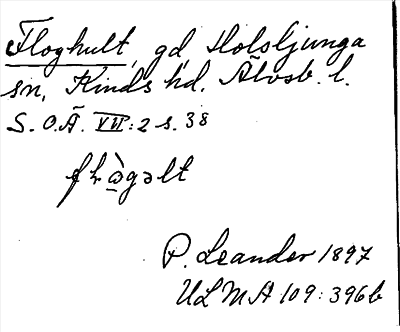 Floghult, gd, Holsljunga
sn, Kinds hd. Älvsb. l.
S.O.Ä. VII:2 s. 38
P. Leander 1897
ULMA 109:396b